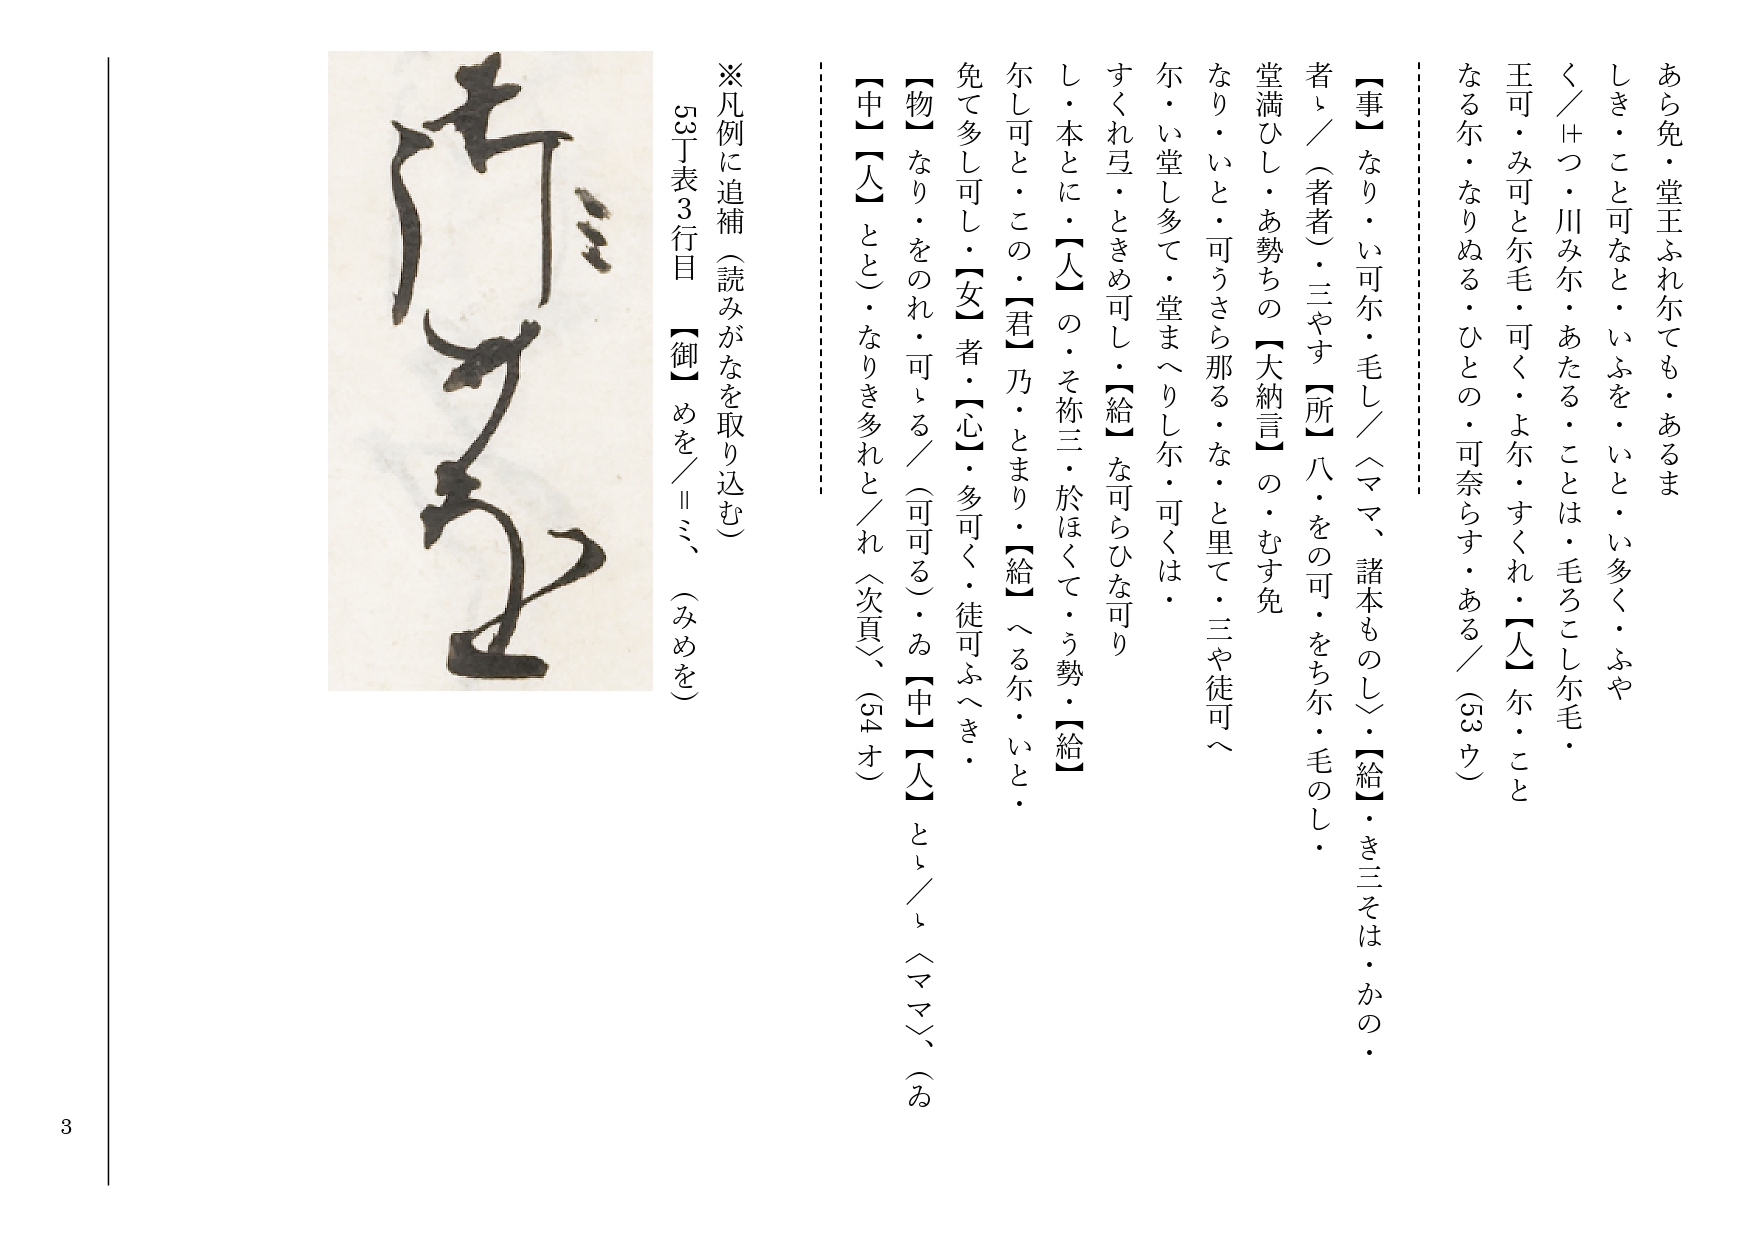 あら免・堂王ふれ尓ても・あるま
しき・こと可なと・いふを・いと・い多く・ふや
く／＝つ・川み尓・あたる・ことは・毛ろこし尓毛・
王可・み可と尓毛・可く・よ尓・すくれ・【人】尓・こと
なる尓・なりぬる・ひとの・可奈らす・ある／（53ウ）
【事】なり・い可尓・毛し／〈ママ、諸本ものし〉・【給】・き三そは・かの・
者ゝ／（者者）・三やす【所】八・をの可・をち尓・毛のし・
堂満ひし・あ勢ちの【大納言】の・むす免
なり・いと・可うさら那る・な・と里て・三や徒可へ
尓・い堂し多て・堂まへりし尓・可くは・
すくれ弖・ときめ可し・【給】な可らひな可り
し・本とに・【人】の・そ祢三・於ほくて・う勢・【給】
尓し可と・この・【君】乃・とまり・【給】へる尓・いと・
免て多し可し・【女】者・【心】・多可く・徒可ふへき・
【物】なり・をのれ・可ゝる／（可可る）・ゐ【中】【人】とゝ／ゝ〈ママ〉、（ゐ
【中】【人】とと）・なりき多れと／れ〈次頁〉、（54オ）
※凡例に追補（読みがなを取り込む）
53丁表３行目　【御】めを／＝ミ、（みめを）
ミ
御めを
3